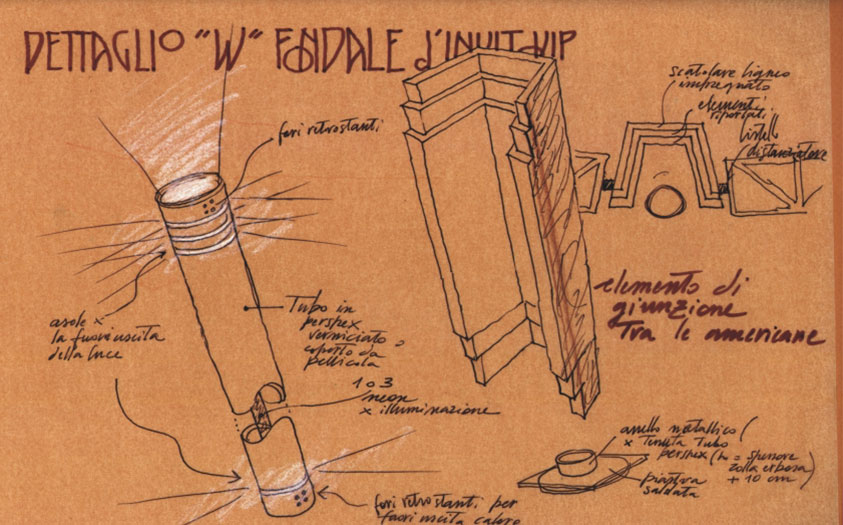 DETTAGLIO "W" FONDALE d'INVITO VIP
fori retrostanti
asole x
la fuoriuscita
della luce
Tubo in
perspex
verniciato o
coperto da
pellicola
1 o 3
neon
x illuminazione
fori retrostanti per
fuori uscita calore
scatolare ligneo
impregnato
elementi
riportati
listelli
distanziatore
elemento di
giunzione
tra le americane
anello metallico
x tenuta tubo
perspex (h = spessore
zolla erbosa
+ 10 cm)
piastra
saldata